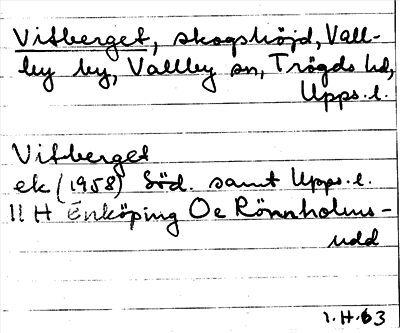 Vitberget, skogshöjd, Vall-
by by, Vallby sn, Trögds hd,
Upps. l.
Vitberget
ek (1958) Söd. samt Upps. l.
11 H Enköping Oe Rönnholms-
udd
1.H.63